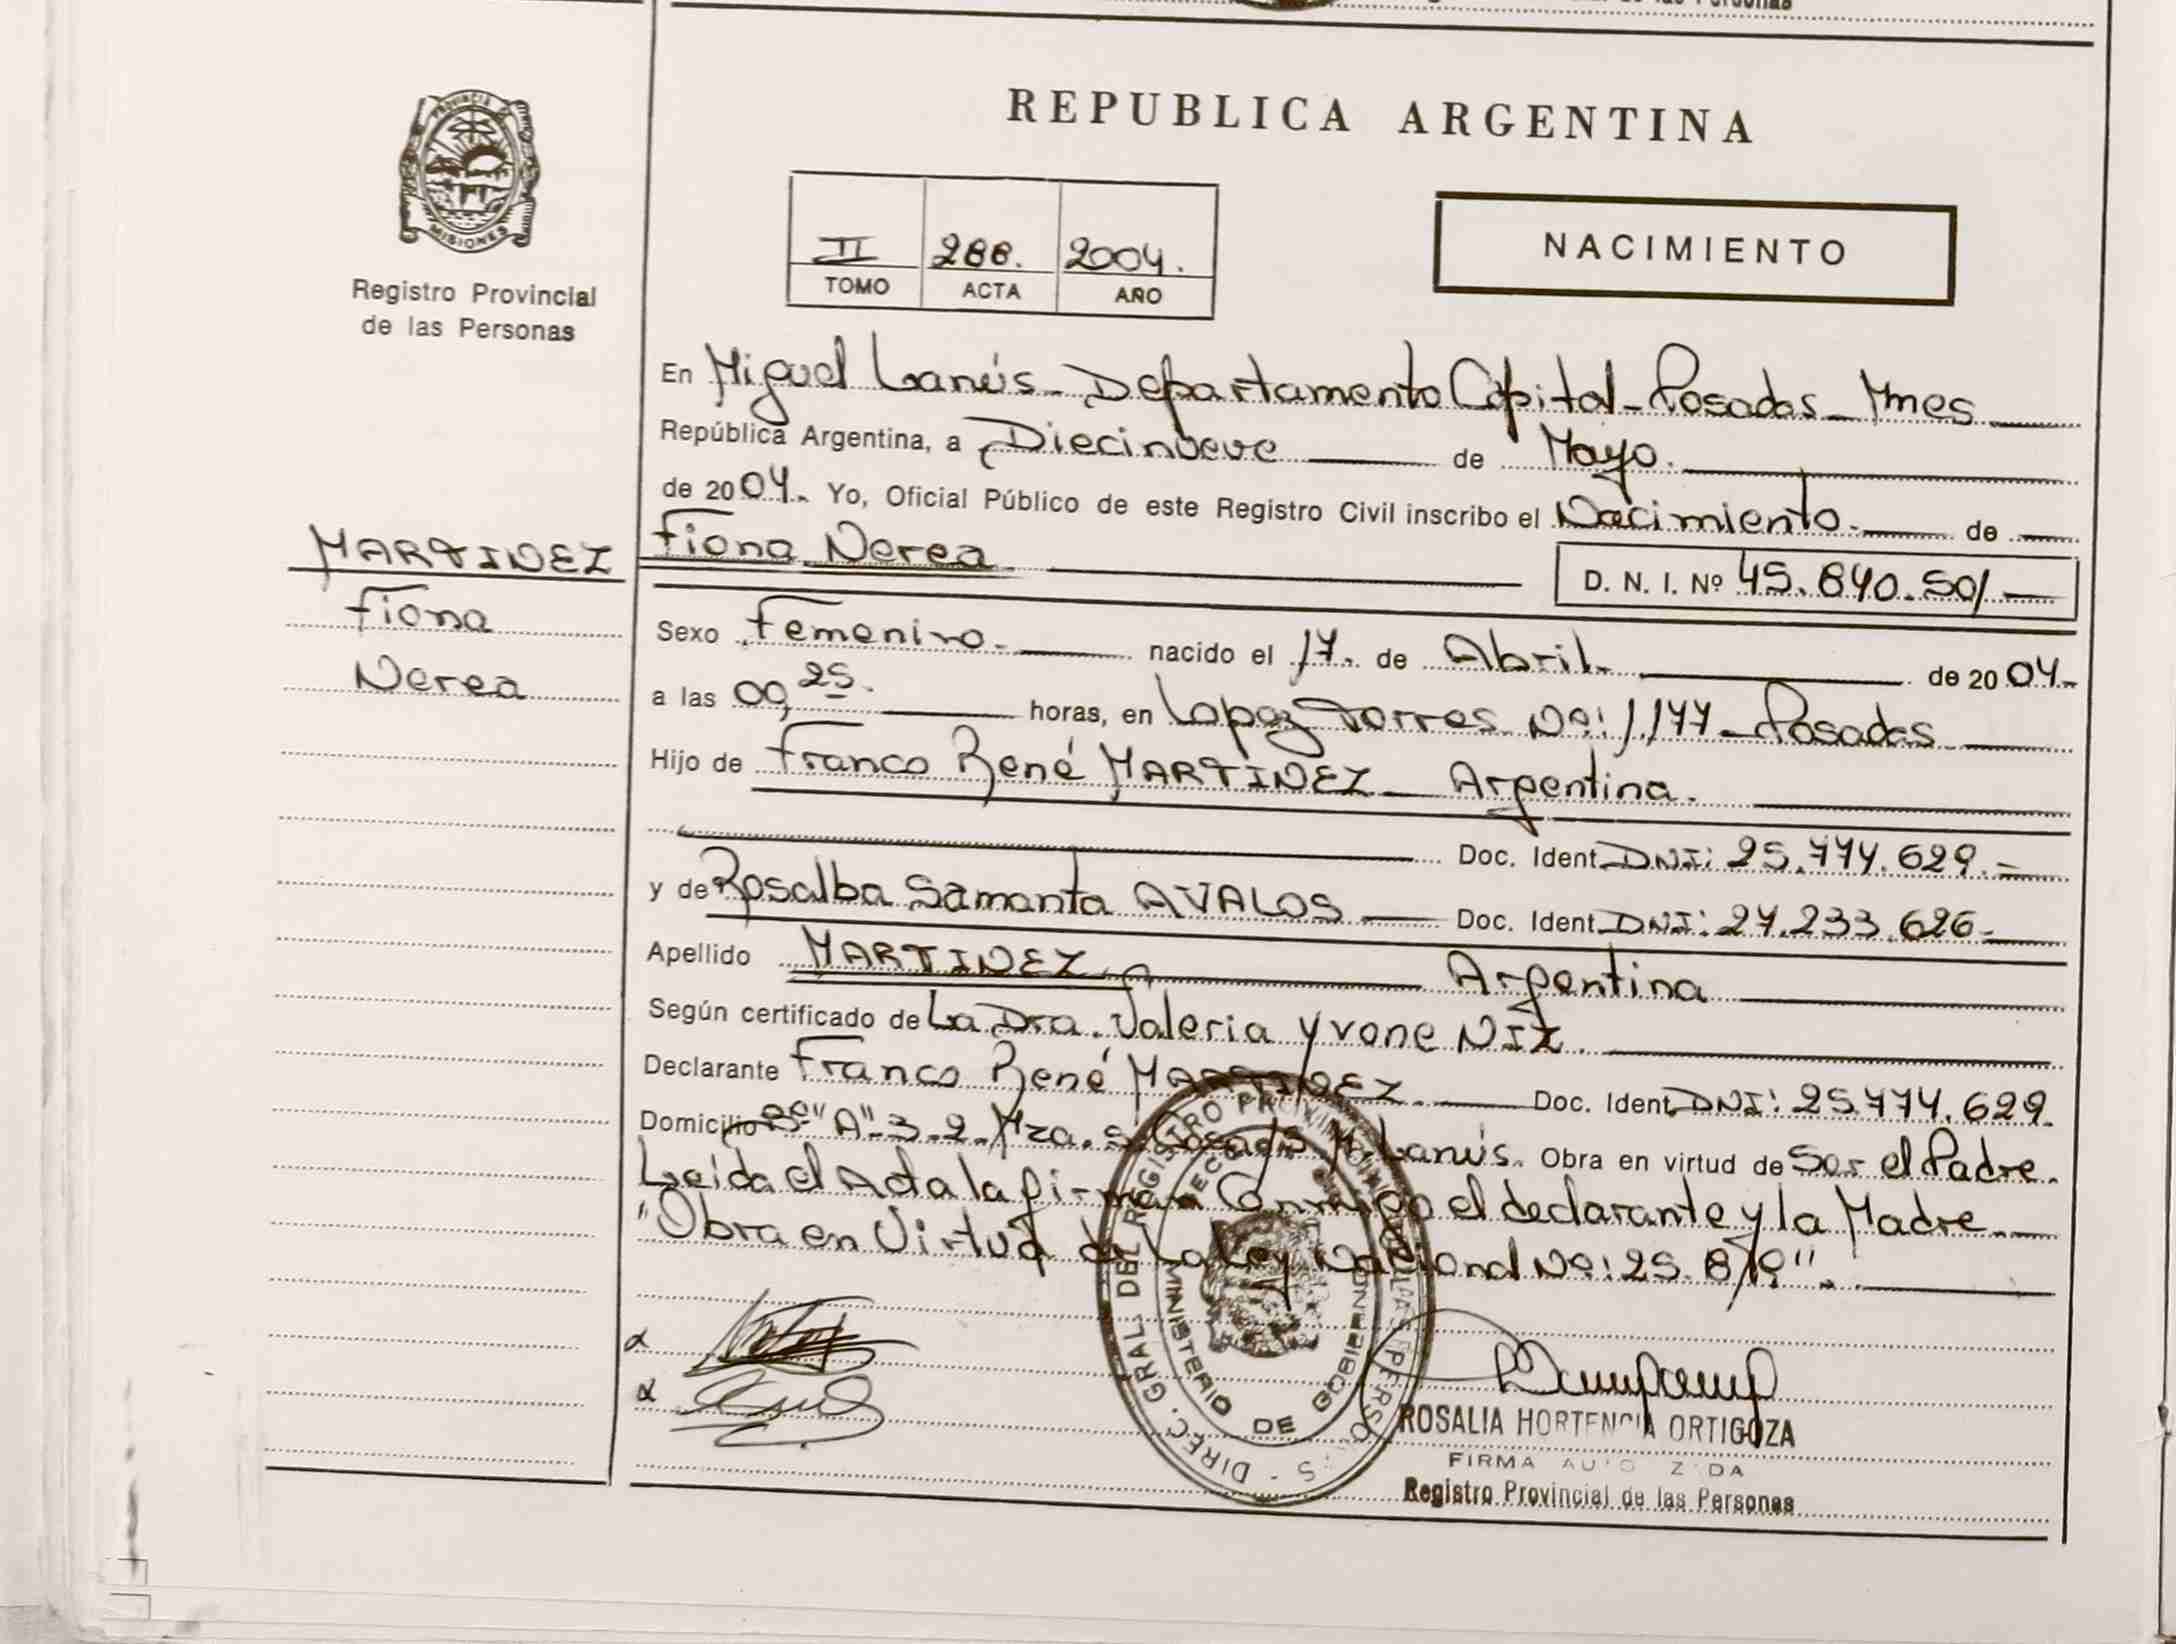 REPUBLICA ARGENTINA
PROVINCIA DE
MISIONES
Registro Provincial
de las Personas
II 288. 2004.
TOMO ACTA AÑO
NACIMIENTO
En Miguel Lanús - Departamento Capital - Posadas - Mnes
República Argentina, a Diecinueve de Mayo.
de 2004. Yo, Oficial Público de este Registro Civil inscribo el Nacimiento. de
MARTINEZ Fiona Nerea
D. N. I. Nº 45.840.501
Fiona
Nerea
Sexo Femenino. nacido el 17. de Abril. de 2004.
a las 00,25. horas, en Lopez Torres Nº: 1.177 - Posadas
Hijo de Franco René MARTINEZ - Argentina.
Doc. Ident. DNI: 25.774.629.
y de Rosalba Samanta AVALOS Doc. Ident. DNI: 27.233.626.
Apellido MARTINEZ Argentina
Según certificado de La Dra. Valeria Yvone NIZ.
Declarante Franco René MARTINEZ Doc. Ident. DNI: 25.774.629.
Domicilio Bº "A" 3-2 - Mza. M. Lanús. Obra en virtud de Ser el Padre.
Leida el Acta la firman Conmigo el declarante y la Madre
"Obra en Virtud de La Ley Nacional Nº: 25.819".
DIREC. GRAL. DEL REGISTRO PROVINCIAL DE LAS PERSONAS
MINISTERIO DE GOBIERNO
ROSALIA HORTENCIA ORTIGOZA
FIRMA AUTORIZADA
Registro Provincial de las Personas